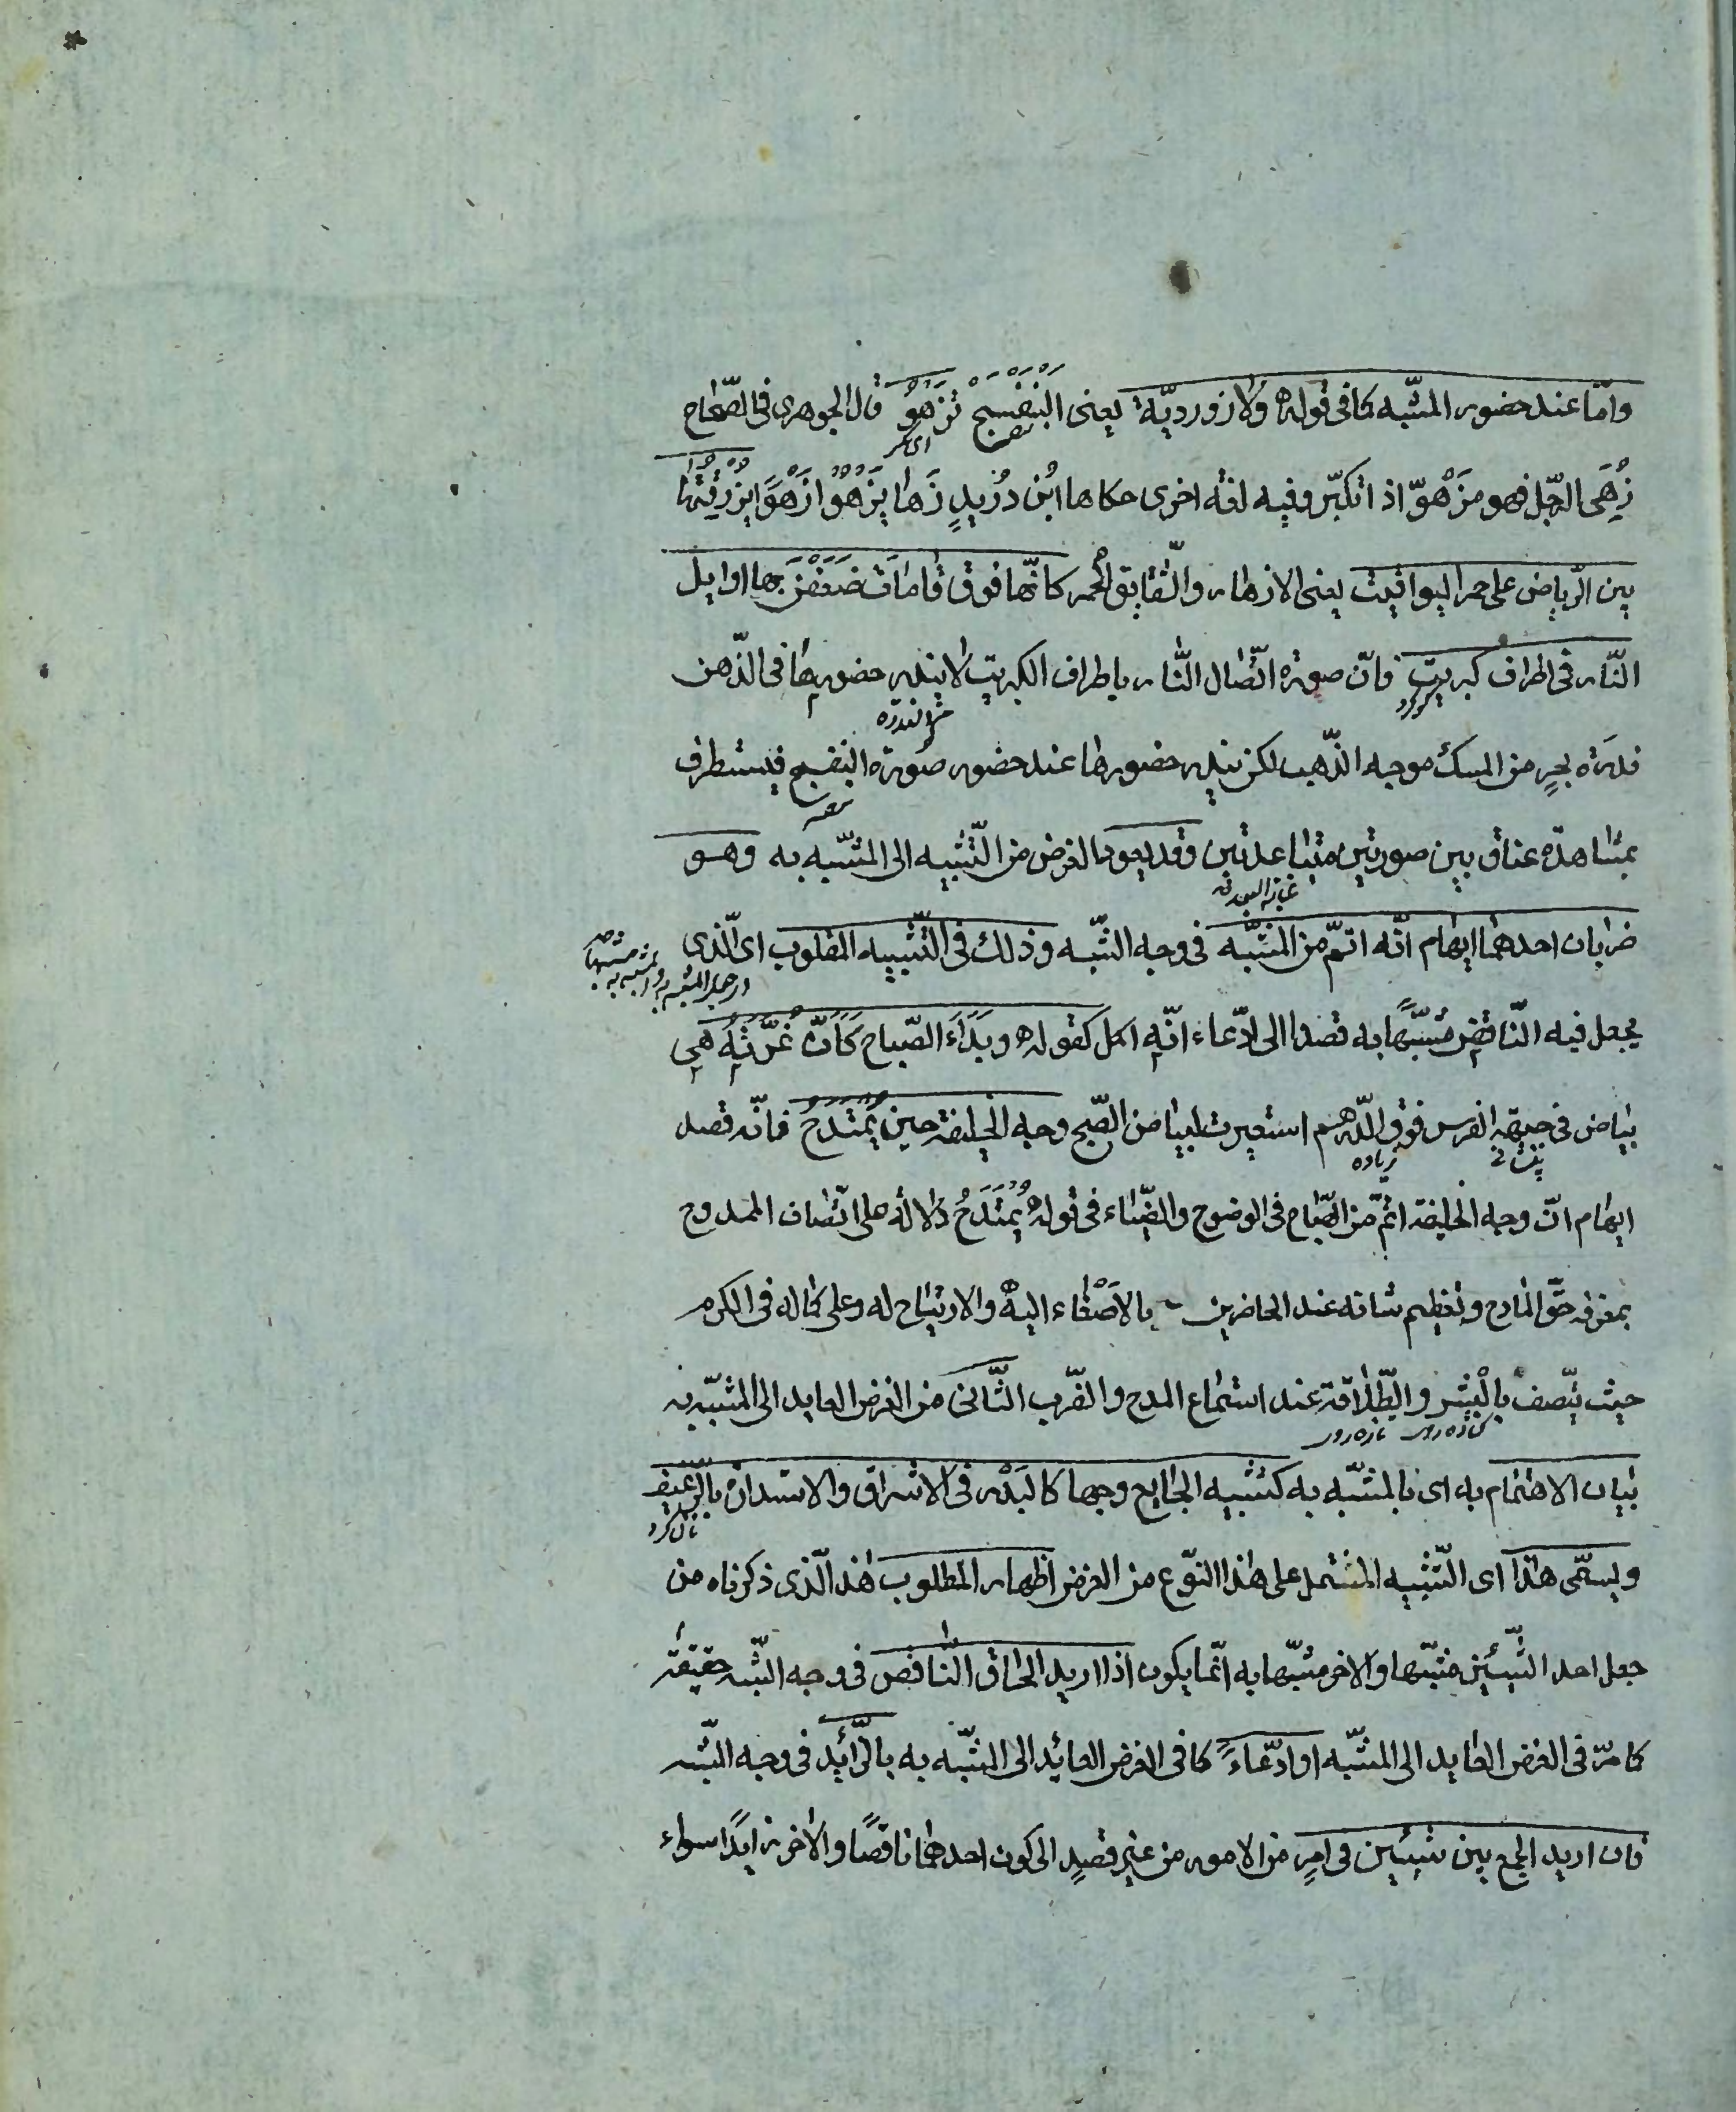 وامّا عند حضور المشبّه كما فى قوله ه ولازورديّة يعنى البنفسج تزهو قال الجوهرى فى الصّحاح
زُهِىَ الرّجل فهو مزهوّ اذا تكبّر وفيه لغة اخرى حكاها ابن دُرَيدٍ زَها يزهُو ازهَوَا بزرقتها
بين الرّياض على حمر اليواقيت يعنى الازهار والشّقايق الحُمر كانّها فوق قامات ضعفن بها اوايل
النّار فى اطراف كبريت فانّ صورة اتّصال النّار باطراف الكبريت لا يندر حضورها فى الذّهن
ندرَة بحرٍ من المسك موجه الذّهب لكن يندر حضورها عند حضور صورة البنفسج فيستطرف
بمشاهدة عناق بين صورتين متباعدتين وقد يعود الغرض من التّشبيه الى المشبّه به وهو
ضربان احدهما ايهام انّه اتمّ من المشبّه فى وجه الشّبه وذلك فى التّشبيه المقلوب اى الّذى
يجعل فيه النّاقص مشبّهًا به قصدا الى ادّعاء انّه اكمل كقوله ه وبَدَاَ الصّباح كَاَنّ غُرَّتَهُ هى
بياض فى جبهة الفرس فوق الدّرهم استعيرت لبياض الصّبح وجه الخليفة حين يُمْتَدَحُ فانّه قصد
ايهام انّ وجه الخليفة اتمّ من الصّباح فى الوضوح والضّياء فى قوله يُمْتَدَحُ دلالة على اتّصاف الممدوح
بمعرفة حقّ المادح وتعظيم شانه عند الحاضرين بالاصْغاء اليه والارتياح له وعلى كماله فى الكرم
حيث يتّصف بالْبِشر والطّلاقة عند استماع المدح والضّرب الثّانى من الغرض العايد الى المشبّه به
كشاده روى تازه روى
بيان الاهتمام به اى بالمشبّه به كتشبيه الجايع وجها كالبَدْر فى الاشراق والاستدارة بالرّغيف
ويسمّى هذا اى التّشبيه المشتمل على هذا النّوع من الغرض اظهار المطلوب هذا الّذى ذكرناه من
جعل احد الشّيئين مشبّها والاخر مشبّها به انّما يكون اذا اريد الحاق النّاقص فى وجه الشّبه حقيقة
كما مرّ فى الغرض العايد الى المشبّه او ادّعاءً كما فى الغرض العائد الى المشبّه به بالزّائد فى وجه الشّبه
فان اريد الجمع بين شيئين فى امرٍ من الامور من غير قصدٍ الى كون احدهما ناقصًا والاخر زايدًا سواء